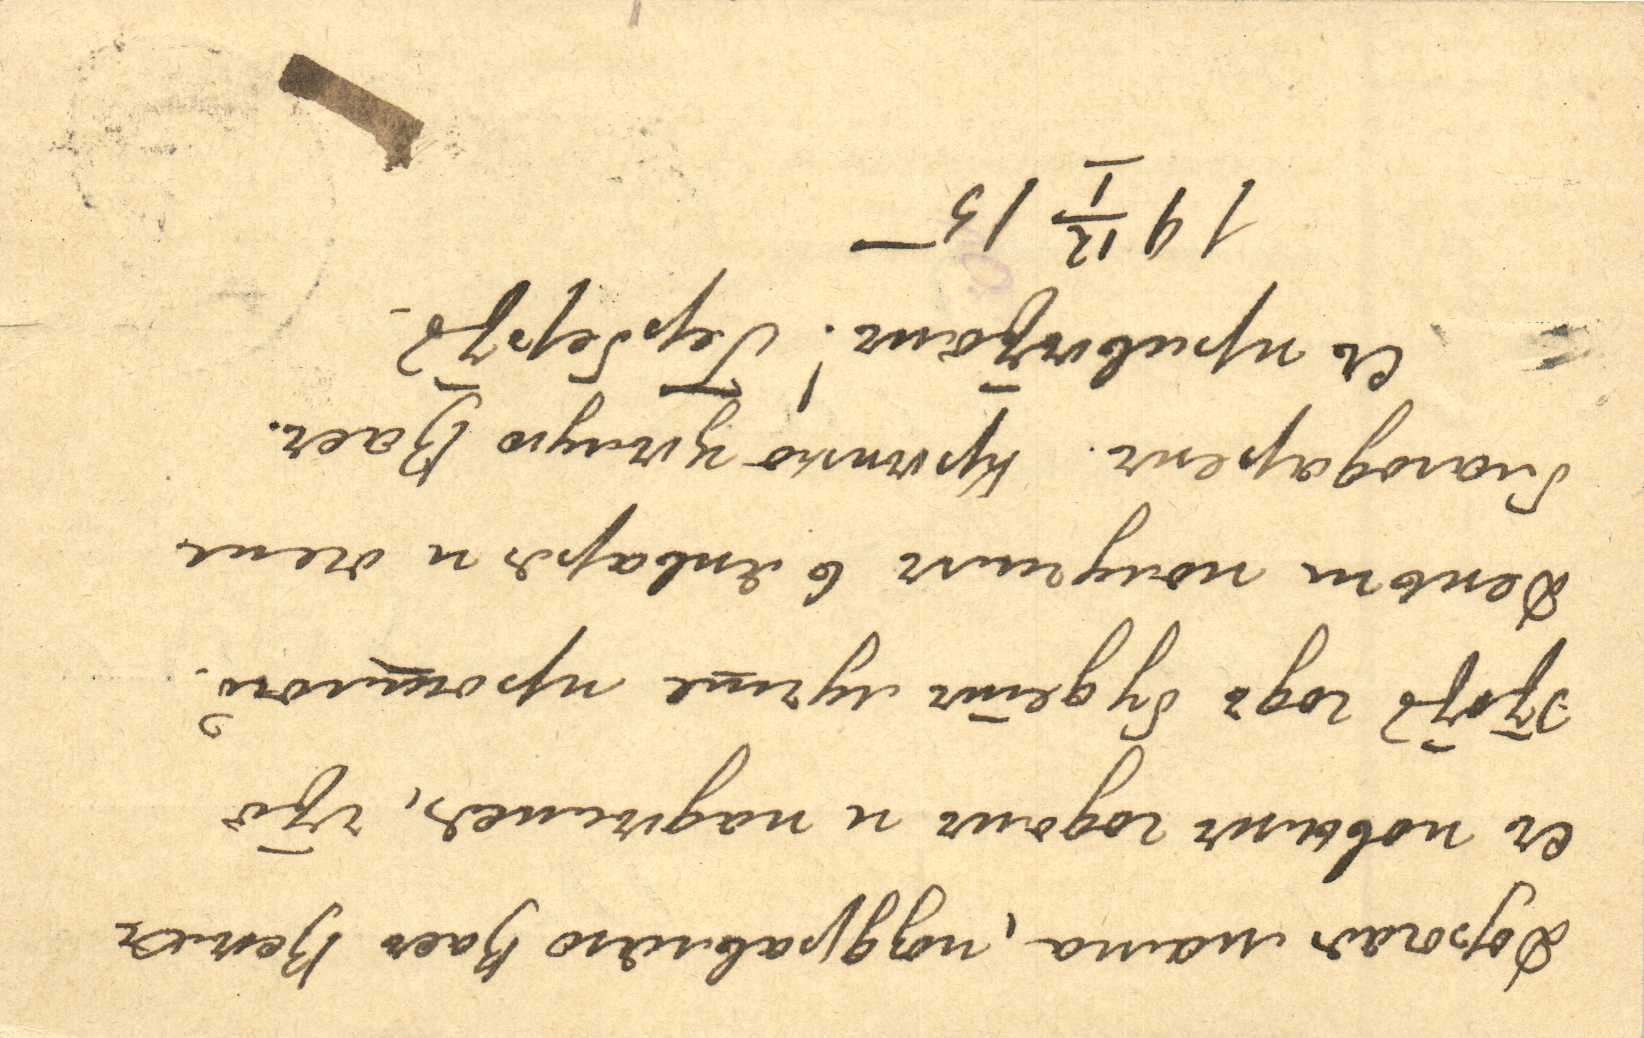 Дорогая мама, поздравляю Васъ Всехъ
съ новымъ годомъ и надѣюсь, что
этотъ годъ будетъ лучше прошлого.
Деньги получилъ 6 января и очень
благодаренъ. Крѣпко цѣлую Васъ.
съ привѣтомъ! Гербертъ.
19 12/I 15